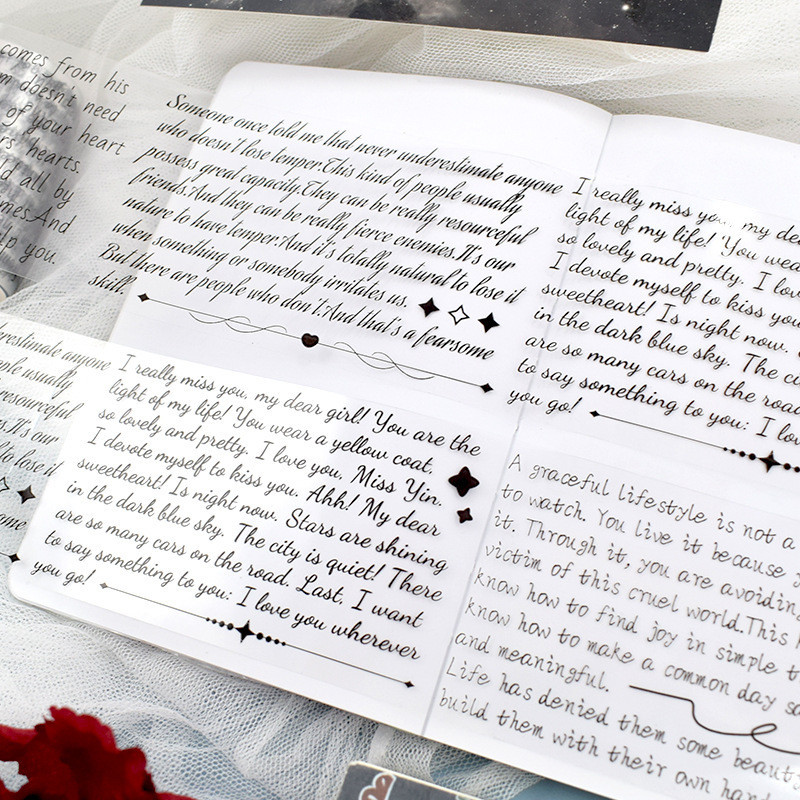 comes from his
doesn't need
of your heart
hearts.
all by
And
you.
Someone once told me that never underestimate anyone
who doesn't lose temper.This kind of people usually
possess great capacity.They can be really resourceful
friends.And they can be really fierce enemies.It's our
nature to have temper.And it's totally natural to lose it
when something or somebody irritates us.
But there are people who don't.And that's a fearsome
skill.
underestimate anyone
usually
resourceful
It's our
to lose it
I really miss you, my dear girl! You are the
light of my life! You wear a yellow coat,
so lovely and pretty. I love you, Miss Yin.
I devote myself to kiss you. Ahh! My dear
sweetheart! Is night now. Stars are shining
in the dark blue sky. The city is quiet! There
are so many cars on the road. Last, I want
to say something to you: I love you wherever
you go!
I really miss you, my
light of my life! You
so lovely and pretty. I
I devote myself to kiss you
sweetheart! Is night now.
in the dark blue sky. The
are so many cars on the road
to say something to you: I
you go!
A graceful lifestyle is not a
to watch. You live it because
it. Through it, you are avoiding
victim of this cruel world.This
know how to find joy in simple
know how to make a common day
and meaningful.
Life has denied them some
build them with their own